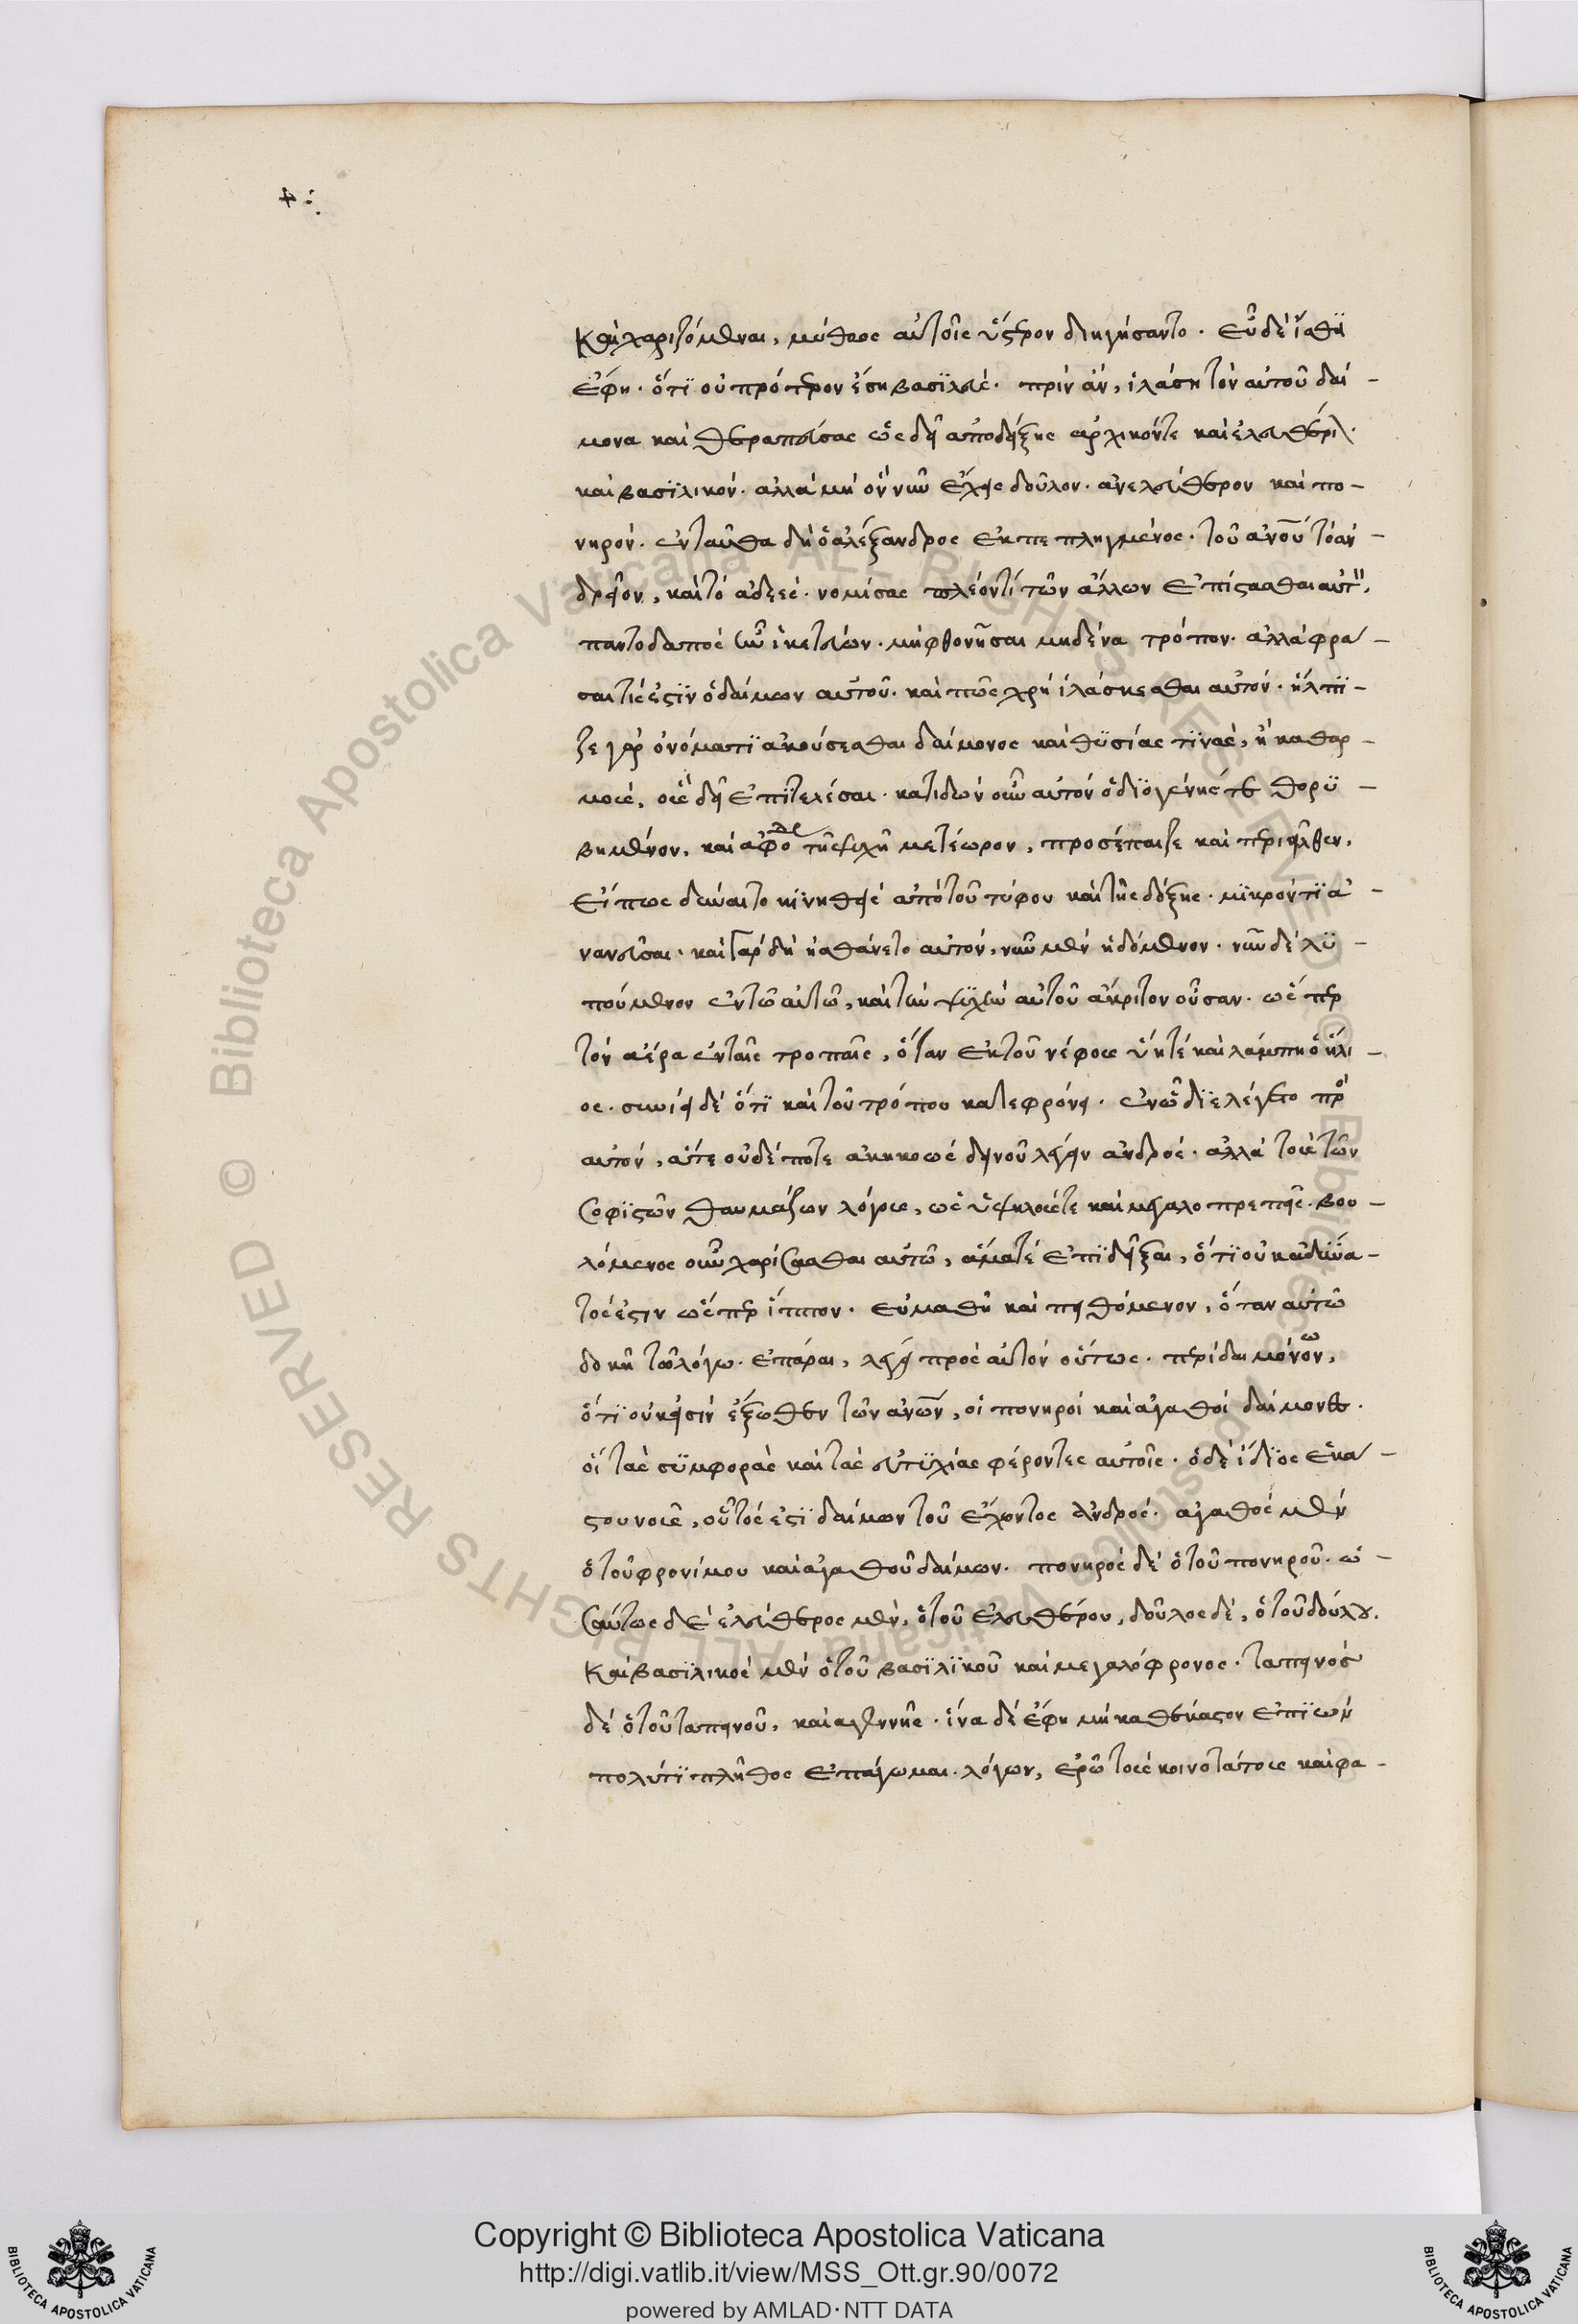 καὶ χαριζόμεναι, μύθους αὐτοῖς ὕστερον διηγήσαντο. εὖ δὲ ἴσθϊ
ἔφη. ὅτϊ οὐ πρότερον ἔσῃ βασϊλεὺς. πρὶν ἂν, ἱλάσῃ τὸν αὑτοῦ δαί-
μονα καὶ θεραπεύσας ὡς δεῖ ἀποδείξῃς ἀρχικόντε καὶ ἐλευθέριον.
καὶ βασϊλικόν. ἀλλὰ μὴ ὃν νῦν ἔχεις δοῦλον. ἀνελεύθερον καὶ πο-
νηρόν. ἐνταῦθα δὴ ὁ ἀλέξανδρος ἐκπεπληγμένος. τοῦ ἀνου τὸ ἀν-
δρεῖον, καὶ τὸ ἀδεές. νομίσας πλέον τί τῶν ἄλλων ἐπίστασθαι αὐτ",
παντοδαπὸς ἦν ἱκετεύων. μὴ φθονῆσαι μηδένα τρόπον. ἀλλὰ φρά-
σαι τίς ἐστϊν ὁ δαίμων αὐτοῦ. καὶ πῶς χρὴ ἱλάσκεσθαι αὐτόν. ἤλπϊ-
ζε γὰρ ὀνόματϊ ἀκούσεσθαι δαίμονος καὶ θϋσίας τϊνὰς, ἢ καθαρ-
μοὺς, οὓς δεῖ ἐπϊτελέσαι. κατιδὼν οὖν αὐτὸν ὁ δϊογένης τε θορϋ-
βημένον, καὶ σφόδρα τῇ ψυχῇ μετέωρον, προσέπαιζε καὶ περιεῖλθεν,
εἴ πως δύναιτο κϊνηθεὶς ἀπὸ τοῦ τύφου καὶ τῆς δόξης. μϊκρόν τϊ ἀ-
νανεῦσαι. καὶ γὰρ δὴ ᾐσθάνετο αὐτὸν, νῦν μὲν ἡδόμενον. νῦν δὲ λϋ-
πούμενον ἐν τῶ αὐτῶ, καὶ τὴν ψϋχὴν αὐτοῦ ἄκριτον οὖσαν. ὥσπερ
τὸν ἀέρα ἐν ταῖς τροπαῖς, ὅταν ἐκ τοῦ νέφους ὕῃ τὲ καὶ λάμπῃ ὁ ἥλι-
ος. συνίει δὲ ὅτϊ καὶ τοῦ τρόπου κατεφρόνει. ἐν ὧ δϊελέγετο πρὸ
αὐτόν, ἅτε οὐδέποτε ἀκηκοὼς δεινοῦ λέγειν ἀνδρός. ἀλλὰ τοὺς τῶν
σοφϊστῶν θαυμάζων λόγους, ὡς ὑψηλούς τε καὶ μεγαλοπρεπεῖς. βου-
λόμενος οὖν χαρίσασθαι αὐτῶ, ἅμα τὲ ἐπϊδεῖξαι, ὅτϊ οὐκ ἀδύνα-
τός ἐστιν ὥσπερ ἵππον. εὐμαθῆ καὶ πειθόμενον, ὅταν αὐτῶ
δοκῇ τῶ λόγω. ἐπᾶραι, λέγει πρὸς αὐτὸν οὕτως. περὶ δαιμόνων,
ὅτϊ οὐκ εἰσὶν ἔξωθεν τῶν ἀνων, οἱ πονηροὶ καὶ ἀγαθοὶ δαίμονες.
οἱ τὰς σϋμφορὰς καὶ τὰς εὐτϋχίας φέροντες αὐτοῖς. ὁ δὲ ἴδϊος ἑκά-
στου νοῦς, οὗτός ἐστϊ δαίμων τοῦ ἔχοντος ἀνδρός. ἀγαθὸς μὲν
ὁ τοῦ φρονίμου καὶ ἀγαθοῦ δαίμων. πονηρὸς δὲ ὁ τοῦ πονηροῦ. ὡ-
σαύτως δὲ ἐλεύθερος μὲν, ὁ τοῦ ἐλευθέρου, δοῦλος δὲ, ὁ τοῦ δούλου.
καὶ βασϊλικὸς μὲν ὁ τοῦ βασϊλϊκοῦ καὶ μεγαλόφρονος. ταπεινὸς
δὲ ὁ τοῦ ταπεινοῦ, καὶ ἀγεννοῦς. ἵνα δὲ ἔφη μὴ καθέκαστον ἐπϊὼν
πολύ τϊ πλῆθος ἐπάγωμαι. λόγων, ἐρῶ τοὺς κοινοτάτους καὶ φα-
Copyright © Biblioteca Apostolica Vaticana
http://digi.vatlib.it/view/MSS_Ott.gr.90/0072
powered by AMLAD·NTT DATA